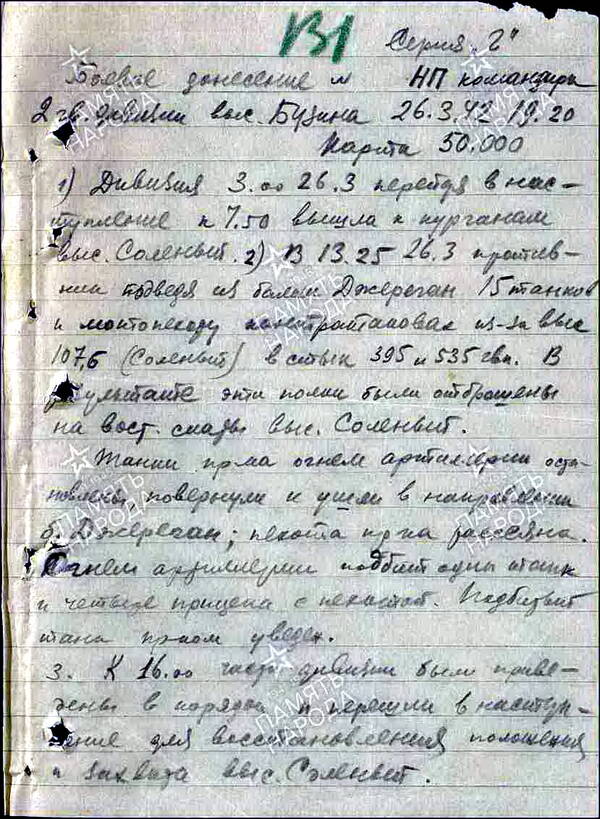 В1
Серия "Г"
Боевое донесение № НП командира
2 гв. дивизии выс. Бузина 26.3.42 19.20
Карта 50.000
1) Дивизия 3.00 26.3 перейдя в нас-
тупление к 7.50 вышла к курганам
выс. Соленый. 2) В 13.25 26.3 против-
ник подведя из балки Джереган 15 танков
и мотопехоту контратаковал из-за выс
107,6 (Соленый) в стык 395 и 535 гвп. В
результате эти полки были отброшены
на вост. скаты выс. Соленый.
Танки пр-ка огнем артиллерии оста-
новлены, повернули и ушли в направлении
б. Джереган; пехота пр-ка рассеяна.
Огнем артиллерии подбит один танк
и четыре прицепа с пехотой. Подбитый
танк пр-ком уведен.
3. К 16.00 части дивизии были приве-
дены в порядок и перешли в наступ-
ление для восстановления положения
и захвата выс. Соленый.
ПАМЯТЬ
НАРОДА